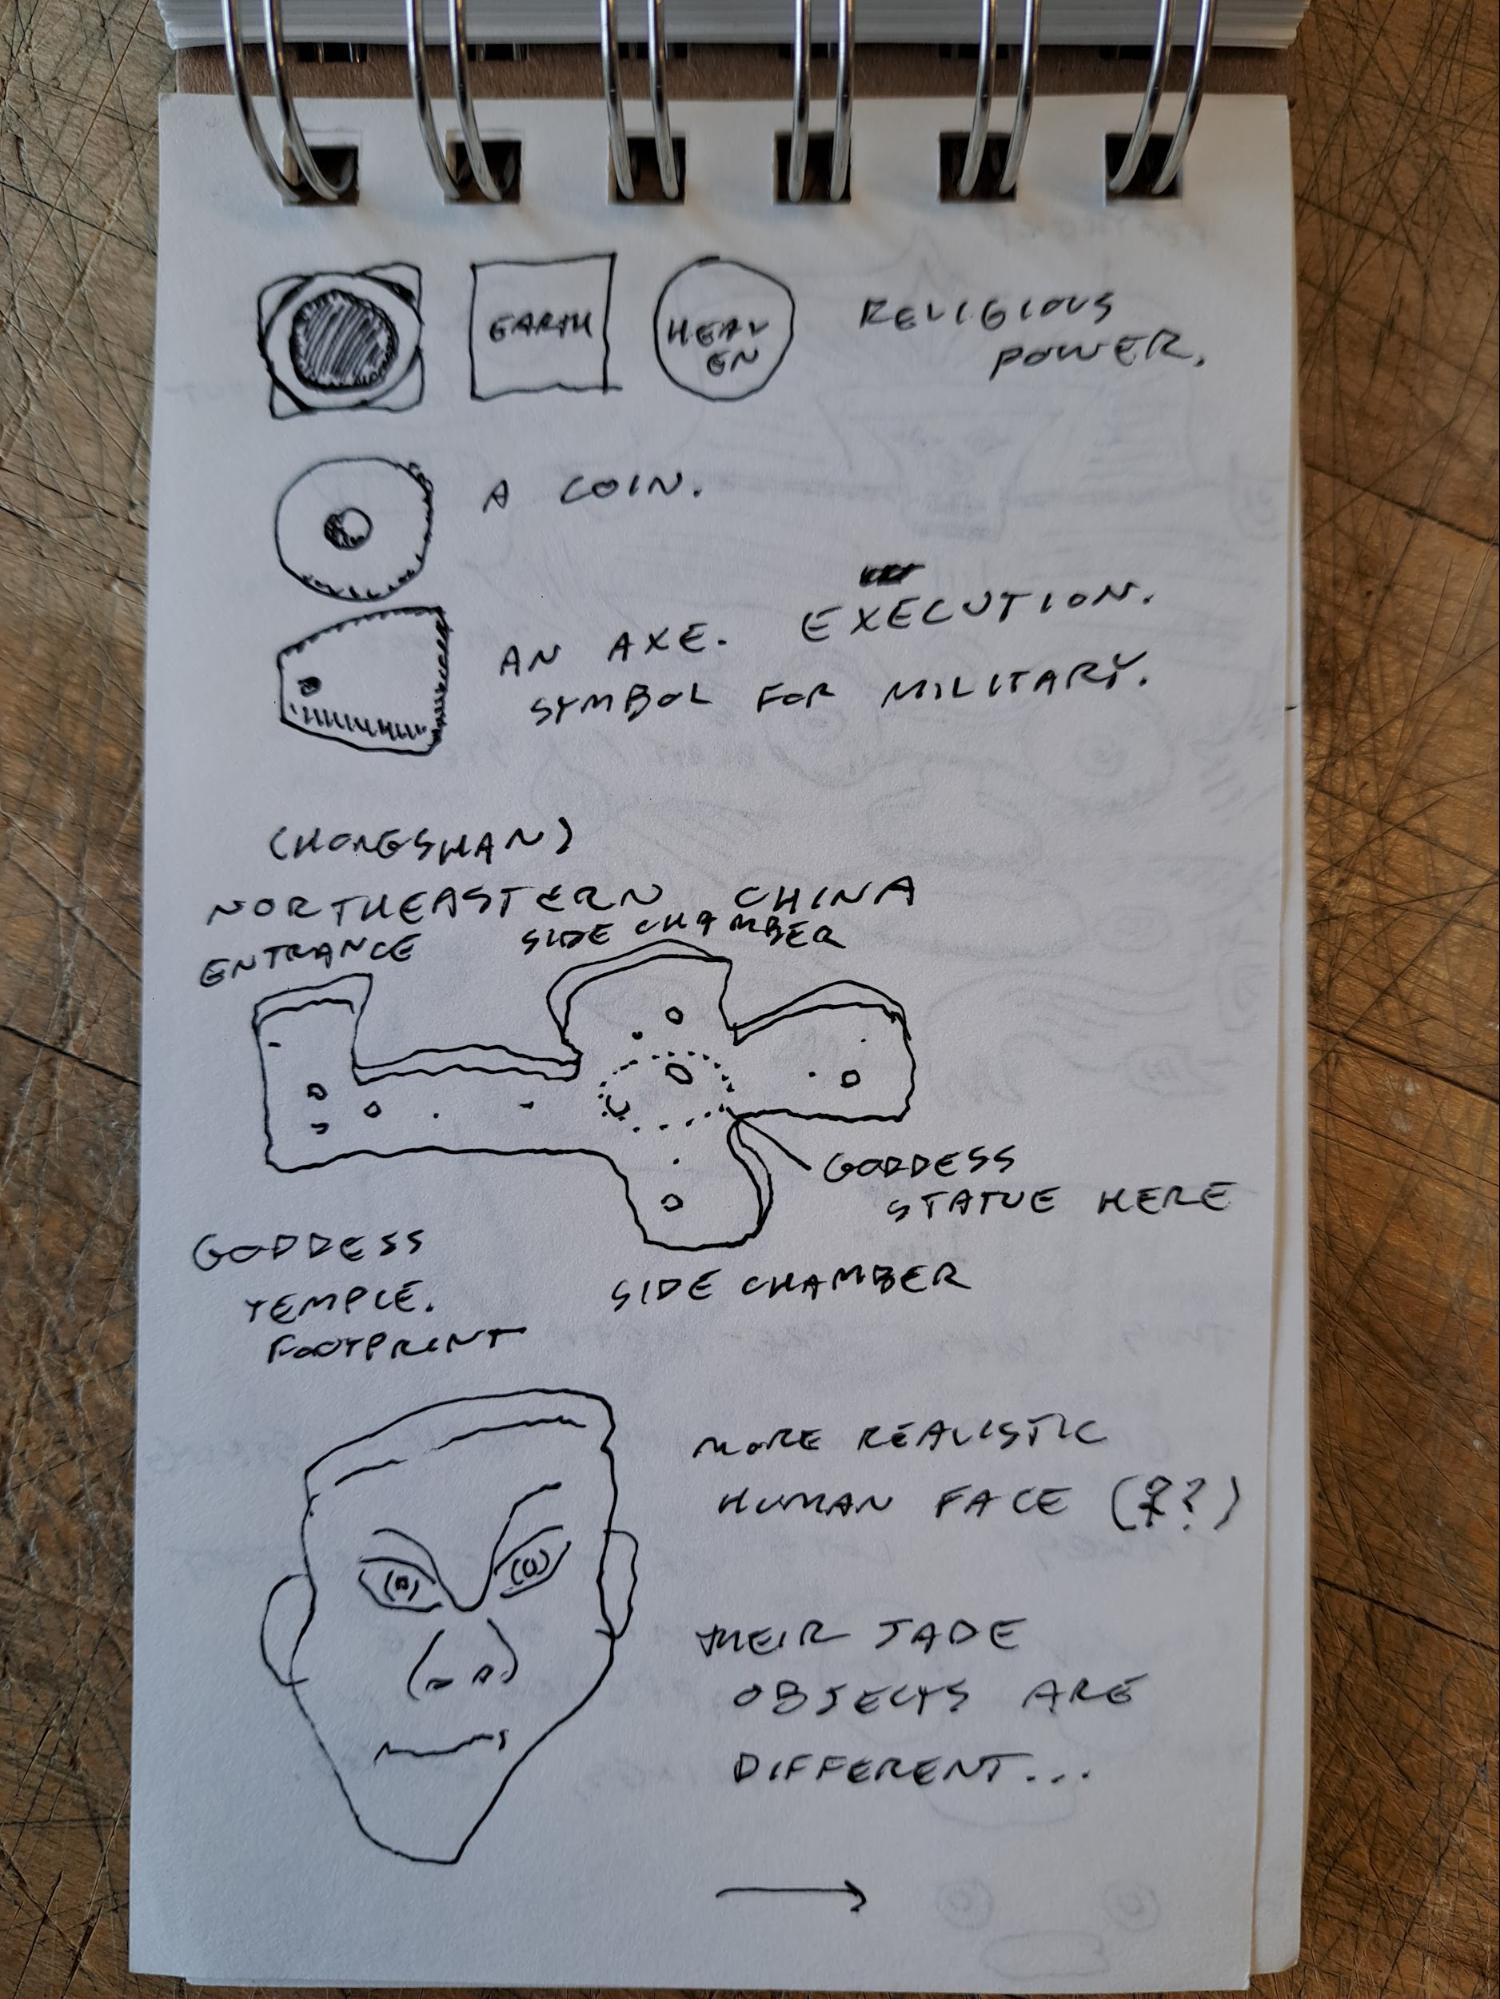 EARTH
HEAV
EN
RELIGIOUS
POWER.
A COIN.
AN AXE. EXECUTION.
SYMBOL FOR MILITARY.
(HONGSHAN)
NORTHEASTERN CHINA
ENTRANCE
SIDE CHAMBER
GODDESS
STATUE HERE
GODDESS
TEMPLE.
FOOTPRINT
SIDE CHAMBER
MORE REALISTIC
HUMAN FACE (♀?)
THEIR JADE
OBJECTS ARE
DIFFERENT...